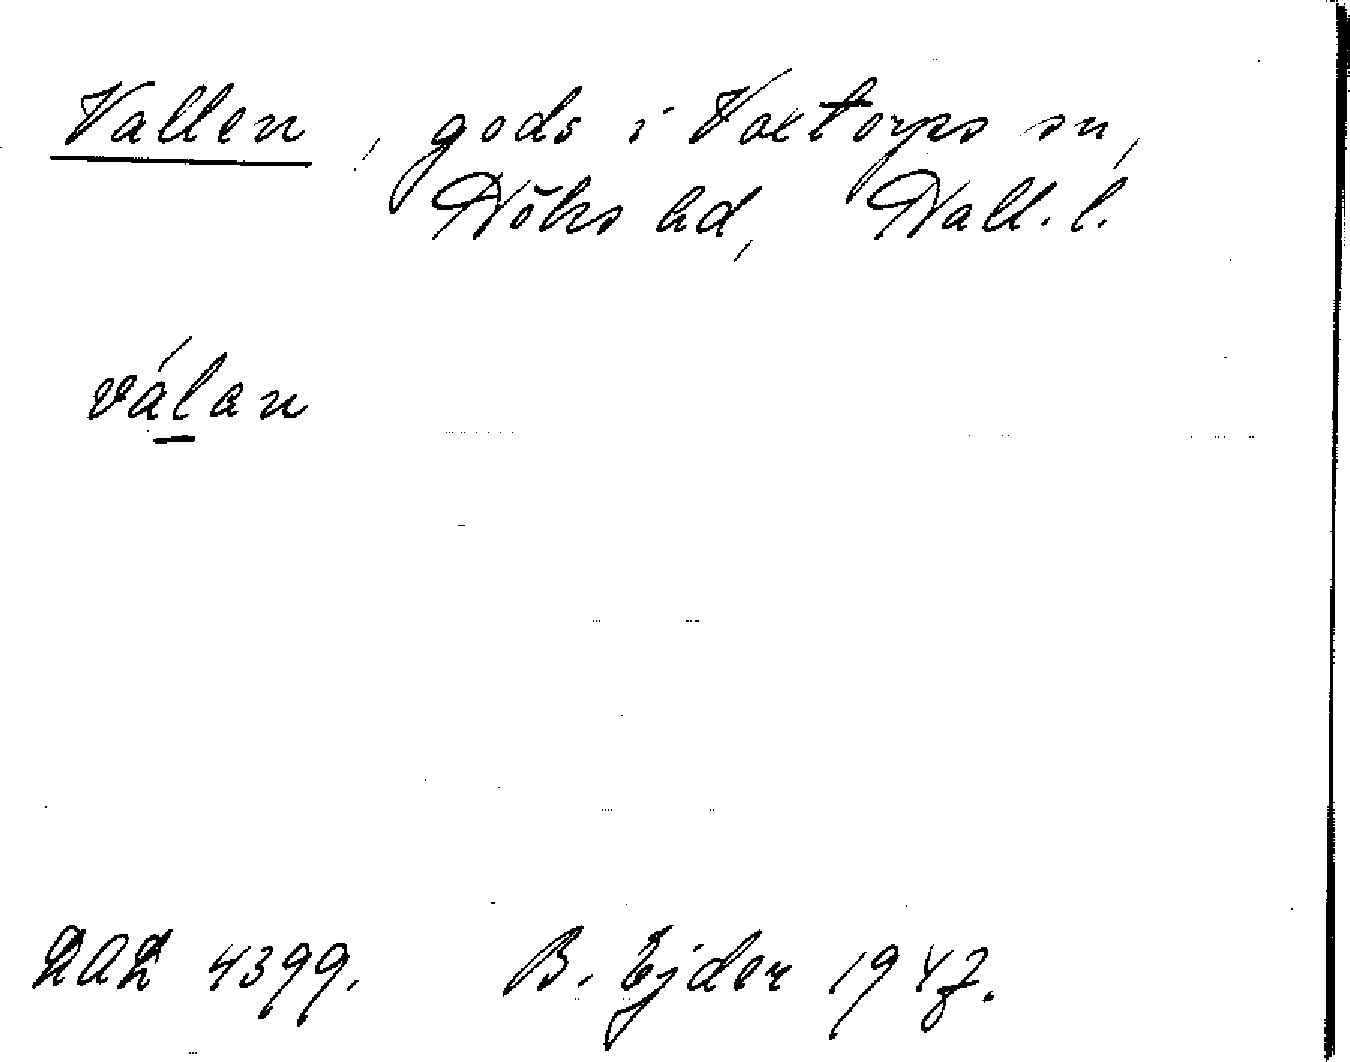 Vallen, gods i Voxtorps sn,
Höks hd, Hall. l.
válan
DAL 4399. B. Ejder 1947.